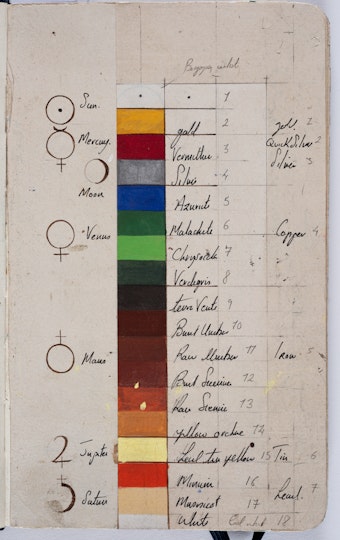 Sun. 1
gold 2 gold 2
Mercury. Vermillion 3 QuickSilver 2
Silver 4 Silver 3
Moon
Azurite 5
Malachite 6
Venus Copper 4
Chrysocolla 7
Verdigris 8
terre Verte 9
Burnt Umber 10
Mars Raw Umber 11 Iron 5
Burnt Sienna 12
Raw Sienna 13
yellow ochre 14
Jupiter Lead tin yellow 15 Tin 6
Minium 16
Saturn Lead. 7
Massicot 17
White Lead white 18